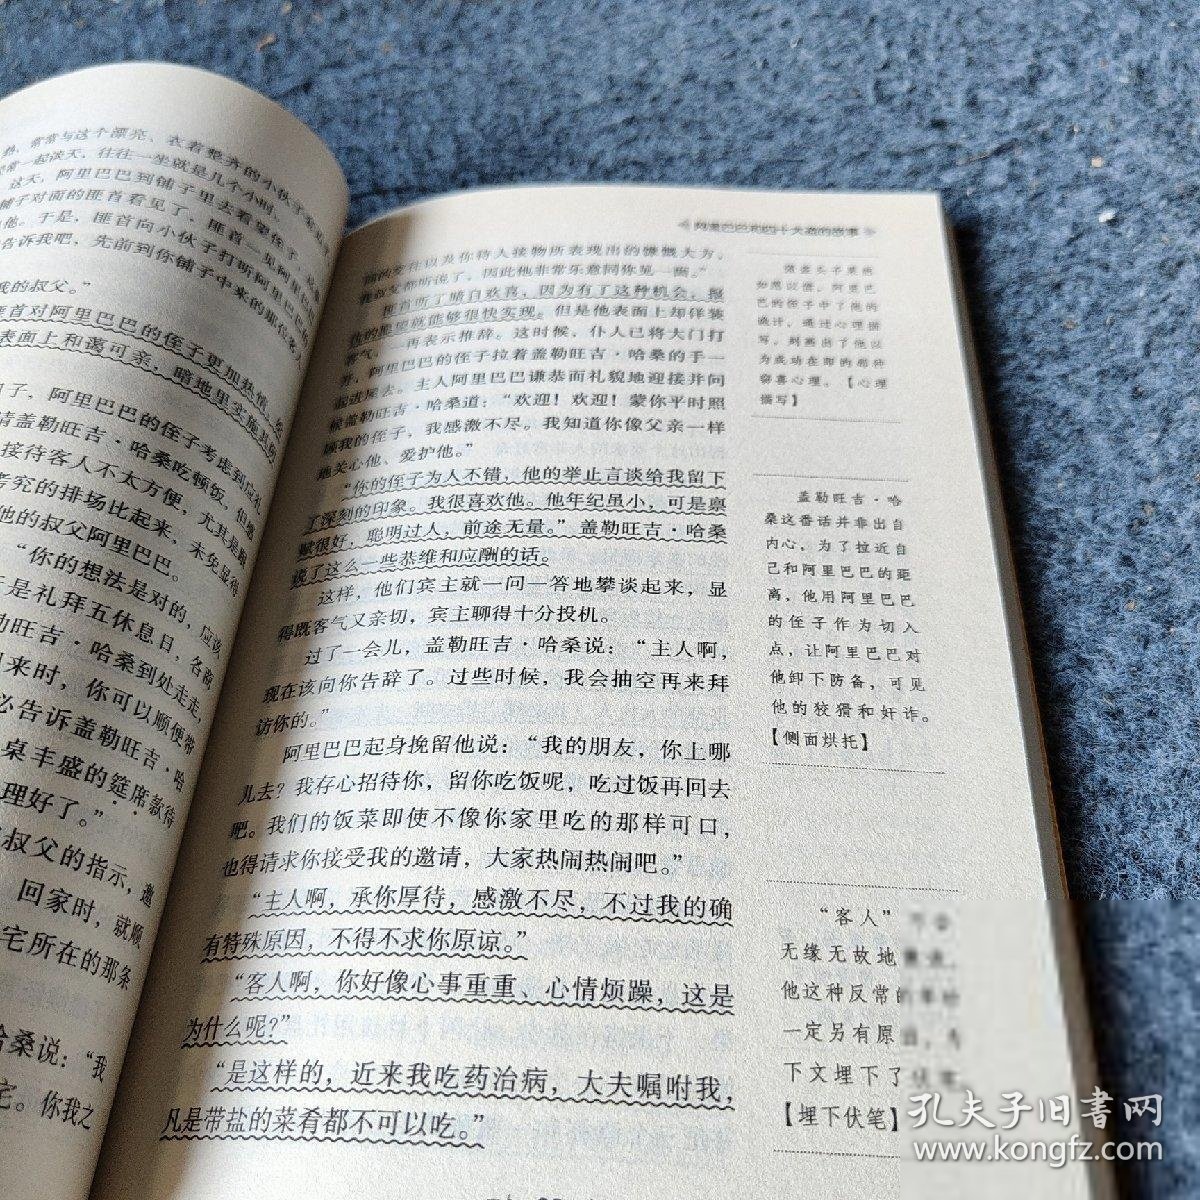 熟，常常与这个漂亮、衣着整齐的小伙子
常一起谈天，往往一坐就是几个小时。
这天，阿里巴巴到铺子里去看望侄子，
铺子对面的匪首看见了，匪首一见阿里巴巴
他。于是，匪首向小伙子打听阿里巴巴
告诉我吧，先前到你铺子中来的那位客人
我的叔父。”
匪首对阿里巴巴的侄子更加热情
表面上和蔼可亲，暗地里实施其
子，阿里巴巴的侄子考虑到应礼
请盖勒旺吉·哈桑吃顿饭，但
接待客人不太方便，尤其是跟
考究的排场比起来，未免显得
他的叔父阿里巴巴。
“你的想法是对的，应该
是礼拜五休息日，各商
勒旺吉·哈桑到处走走，
回来时，你可以顺便带
必告诉盖勒旺吉·哈
桌丰盛的筵席款待
理好了。”
叔父的指示，邀
回家时，就顺
宅所在的那条
哈桑说：“我
宅。你我之
阿里巴巴和四十大盗的故事
以及你待人接物所表现出的慷慨大方，
我叔父都听说了，因此他非常乐意同你见一面。”
匪首听了暗自欢喜，因为有了这种机会，报
仇的愿望就能够很快实现。但是他表面上却佯装
客气，一再表示推辞。这时候，仆人已将大门打
开，阿里巴巴的侄子拉着盖勒旺吉·哈桑的手一
起进屋去。主人阿里巴巴谦恭而礼貌地迎接并问
候盖勒旺吉·哈桑道：“欢迎！欢迎！蒙你平时照
顾我的侄子，我感激不尽。我知道你像父亲一样
地关心他、爱护他。”
“你的侄子为人不错，他的举止言谈给我留下
了深刻的印象。我很喜欢他。他年纪虽小，可是禀
赋很好，聪明过人，前途无量。”盖勒旺吉·哈桑
说了这么一些恭维和应酬的话。
这样，他们宾主就一问一答地攀谈起来，显
得既客气又亲切，宾主聊得十分投机。
过了一会儿，盖勒旺吉·哈桑说：“主人啊，
现在该向你告辞了。过些时候，我会抽空再来拜
访你的。”
阿里巴巴起身挽留他说：“我的朋友，你上哪
儿去？我存心招待你，留你吃饭呢，吃过饭再回去
吧。我们的饭菜即使不像你家里吃的那样可口，
也得请求你接受我的邀请，大家热闹热闹吧。”
“主人啊，承你厚待，感激不尽，不过我的确
有特殊原因，不得不求你原谅。”
“客人啊，你好像心事重重、心情烦躁，这是
为什么呢？”
“是这样的，近来我吃药治病，大夫嘱咐我，
凡是带盐的菜肴都不可以吃。”
强盗头子果然
如愿以偿，阿里巴
巴的侄子中了他的
诡计，通过心理描
写，刻画出了他以
为成功在即的那种
窃喜心理。【心理
描写】
盖勒旺吉·哈
桑这番话并非出自
内心，为了拉近自
己和阿里巴巴的距
离，他用阿里巴巴
的侄子作为切入
点，让阿里巴巴对
他卸下防备，可见
他的狡猾和奸诈。
【侧面烘托】
“客人”
无缘无故地
他这种反常
一定另有原
下文埋下了
【埋下伏笔】
孔夫子旧书网
www.kongfz.com